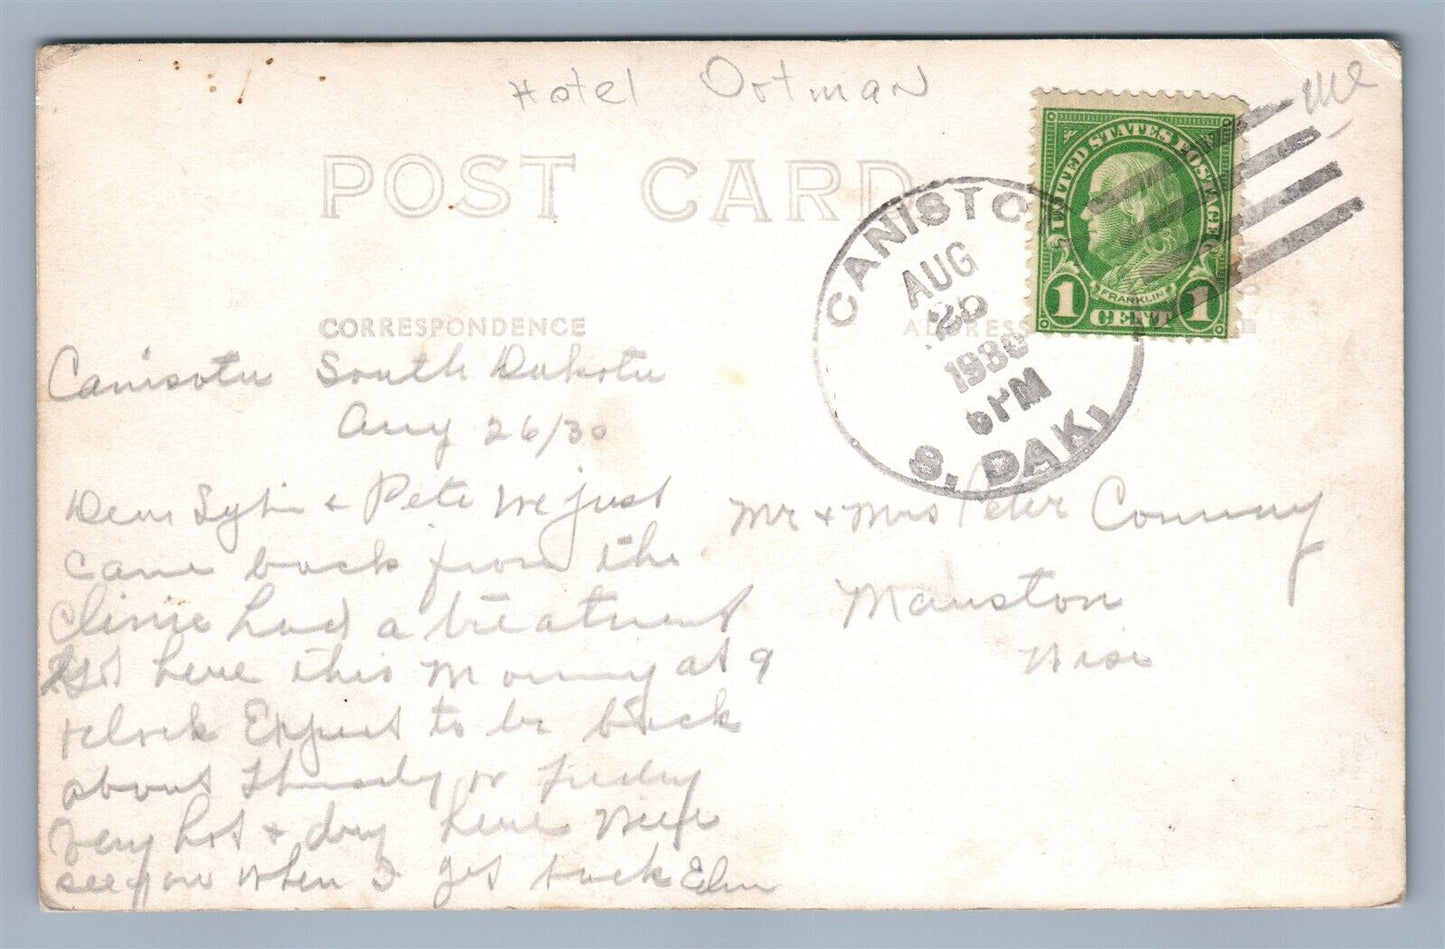 Hotel Ortman
POST CARD
UNITED STATES POSTAGE
FRANKLIN
1 CENT 1
CANISTO
AUG
1930
PM
S. DAK.
CORRESPONDENCE
ADDRESS
Canisotu South Dakotu
Aug 26/30
Dear & Pete we just
came back from the
clinic had a treatment
got here this Morning at 9
oclock Expect to be back
about Thursday or Friday
Very hot & dry here Will
see you when I get back
Mr & Mrs Peter Conway
Mauston
Wise